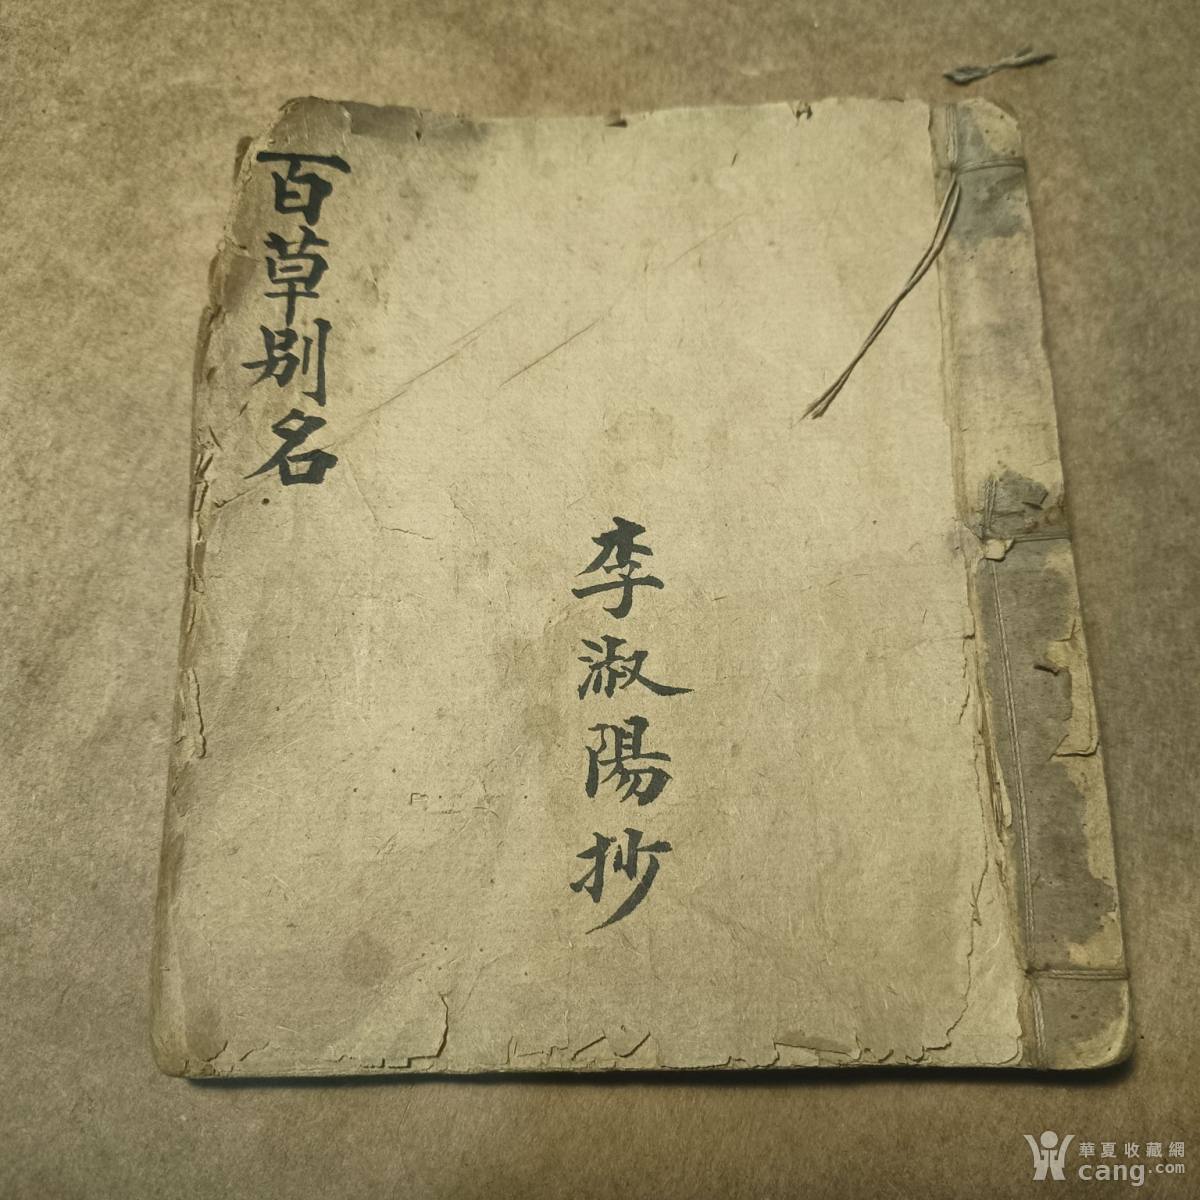 百草别名
李淑陽抄
華夏收藏網
cang.com